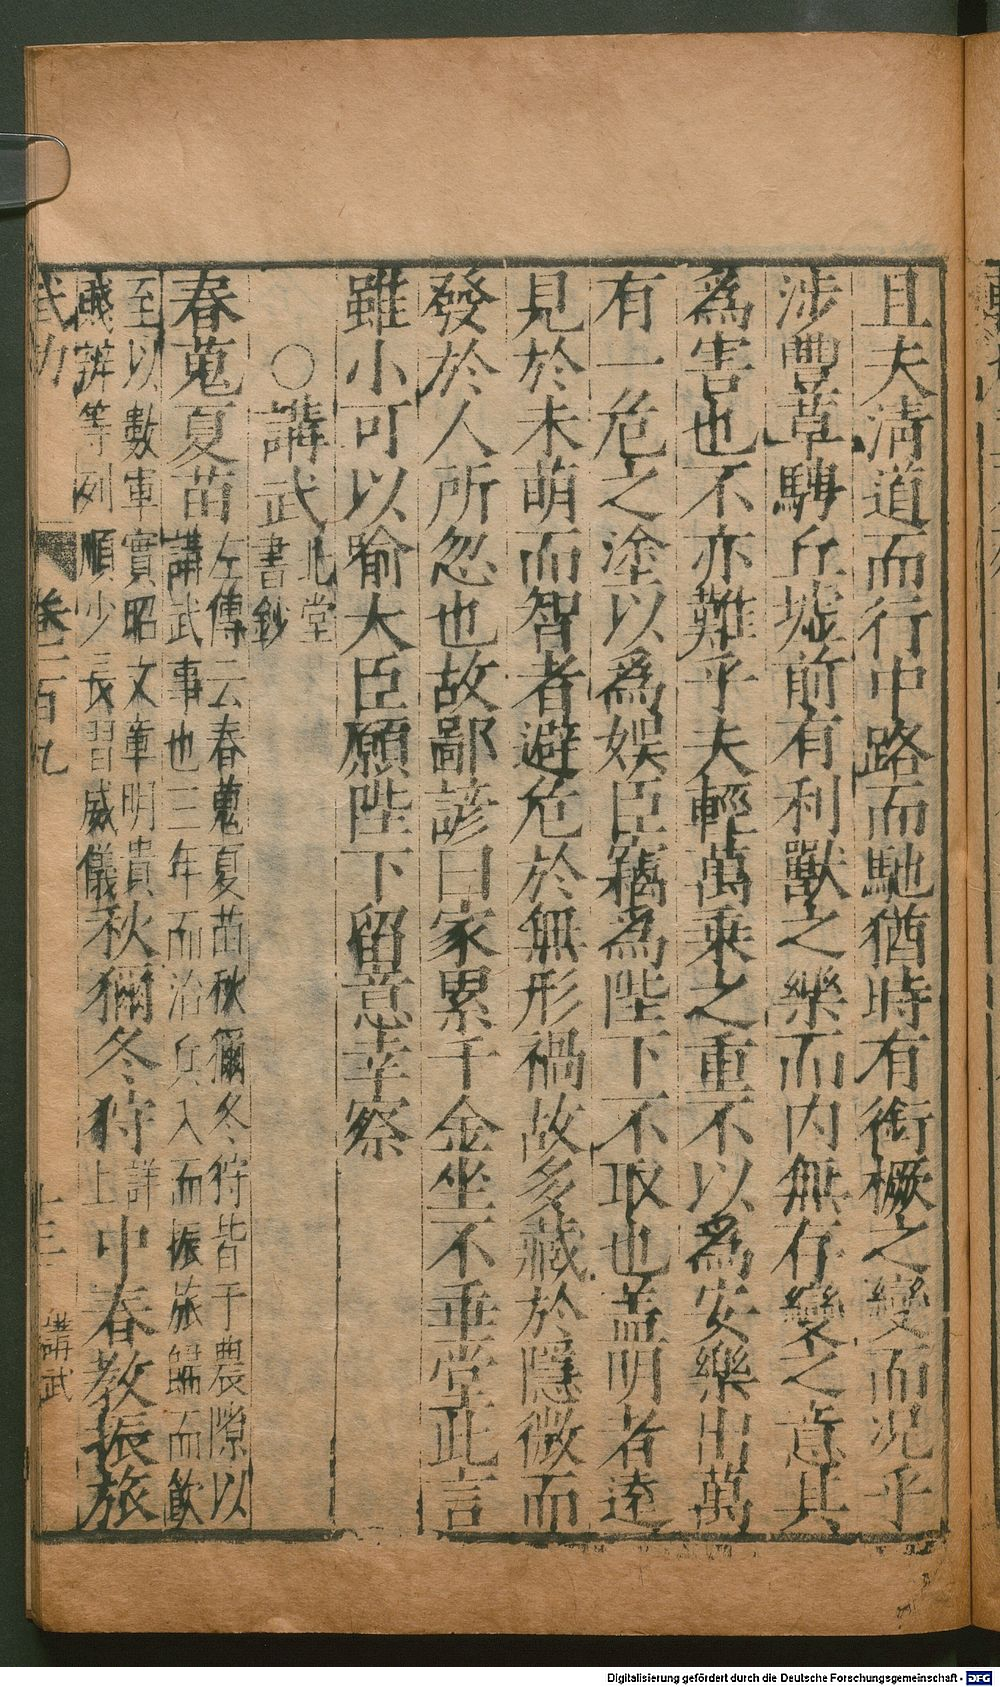 且夫清道而行中路而馳猶時有銜橛之變而况乎
涉豐草騁丘墟前有利獸之樂而内無存變之意其
爲害也不亦難乎夫輕萬乗之重不以爲安樂出萬
有一危之塗以爲娛臣竊爲陛下不取也盖明者逺
見於未萌而智者避危於無形禍故多藏於隱微而
發於人所忽也故鄙諺曰家累千金坐不垂堂此言
雖小可以喻大臣願陛下留意幸察
○講武
北堂
書鈔
春蒐夏苗
左傳云春蒐夏苗秋獮冬狩皆于農隙以
講武事也三年而治兵入而振旅歸而飲
至以數軍實昭文章明貴
賤辨等列順少長習威儀
秋獮冬狩
詳
上
中春教振旅
武功
卷二百九
十三
講武
Digitalisierung gefördert durch die Deutsche Forschungsgemeinschaft - DFG